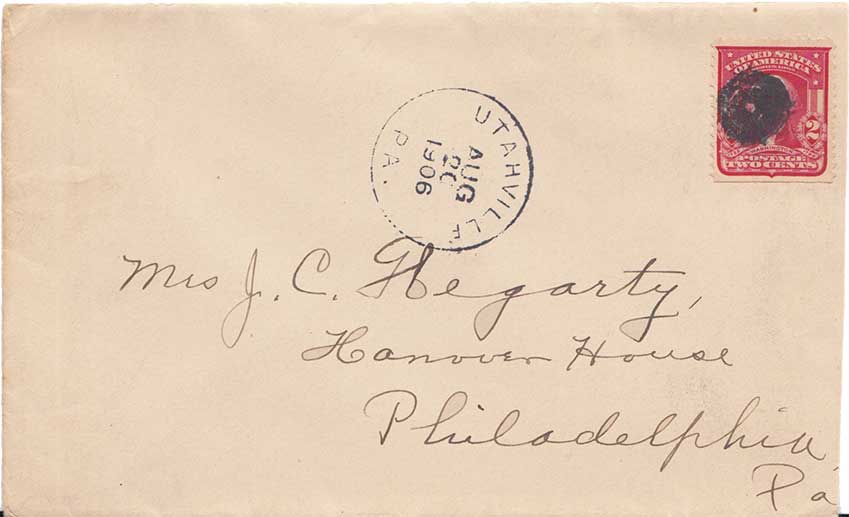 UNITED STATES
OF AMERICA
2
WASHINGTON
POSTAGE
TWO CENTS
UTAHVILLE
PA.
AUG
20
1906
Mrs J. C. Hegarty,
Hanover House
Philadelphia,
Pa